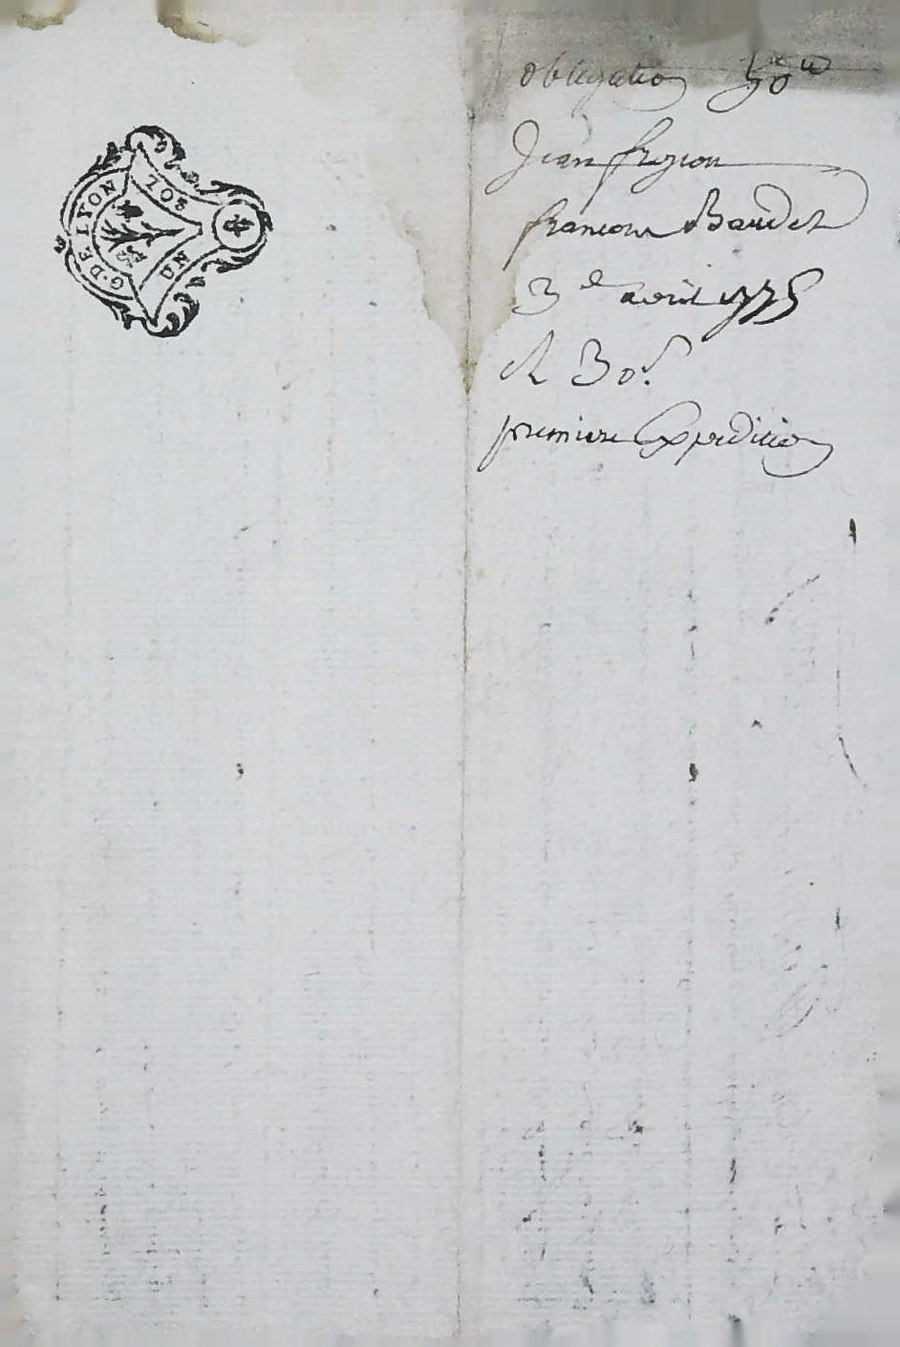 G. DE LYON
UN SOL
obligation 50 ᵗᵗ
Jean freyron
francois Baudet
3e avril 1775
R 30 s.
premiere Expedition